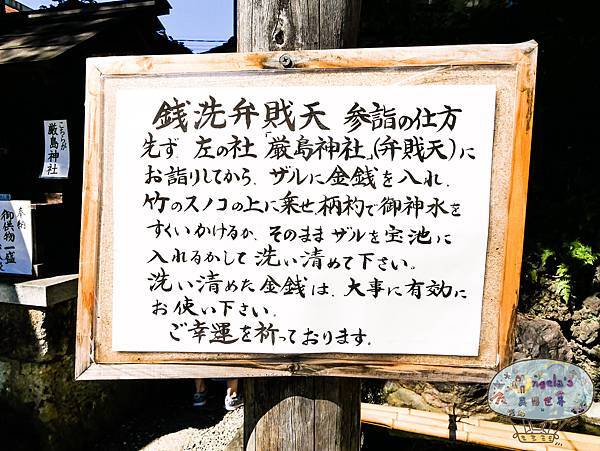 銭洗弁財天 参詣の仕方
先ず 左の社「厳島神社」(弁財天)に
お詣りしてから、ザルに金銭を入れ、
竹のスノコの上に乗せ、柄杓で御神水を
すくいかけるか、そのままザルを宝池に
入れるかして洗い清めて下さい。
洗い清めた金銭は、大事に有効に
お使い下さい。
ご幸運を祈っております。
こちらが
厳島神社
奉納
御供物一盛
Angela's
異想世界